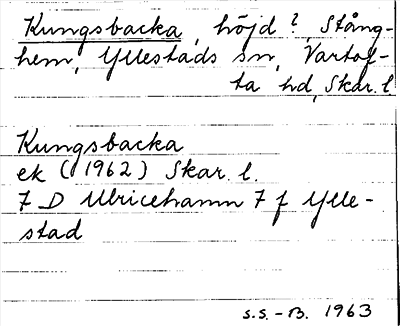 Kungsbacka, höjd?, Stång-
hem, Yllestads sn, Vartof-
ta hd, Skar. l.
Kungsbacka
ek (1962) Skar. l.
7 D Ulricehamn 7 f Ylle-
stad
s.s.-B. 1963